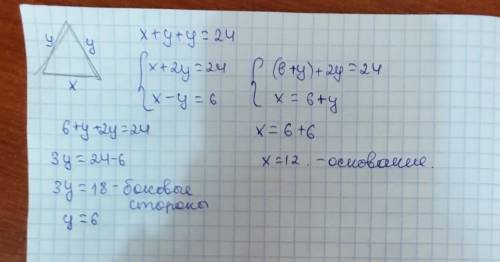 y y
x
x+y+y=24
{ x+2y=24
x-y=6
{ (6+y)+2y=24
x=6+y
6+y+2y=24
3y=24-6
3y=18 - боковые
стороны
y=6
x=6+6
x=12. - основание.